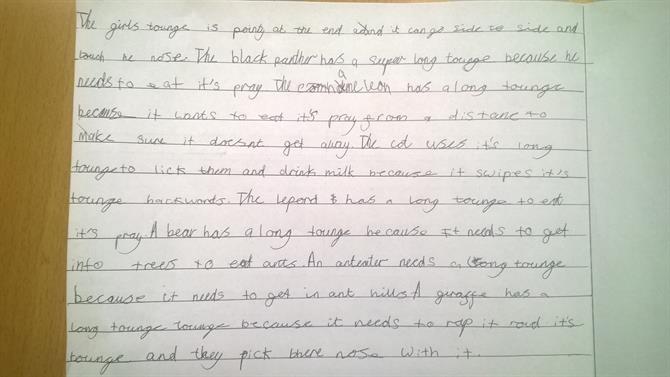 The girls tounge is pointy at the end and it can go side to side and
touch he nose. The black panther has a super long tounge because he
needs to at it's pray The has a long tounge
because it wants to eat it's pray from a distanc to
make sure it doesnt get away. The cat uses it's long
tounge to lick them and drink milk because it swipes it's
tounge backwards. The lepord has a long tounge to eat
it's pray A bear has a long tounge because It needs to get
into trees to eat ants. An anteater needs a long tounge
because it needs to get in ant hills A giraffe has a
long tounge tounge because it needs to rap it roud it's
tounge and they pick there nose with it.